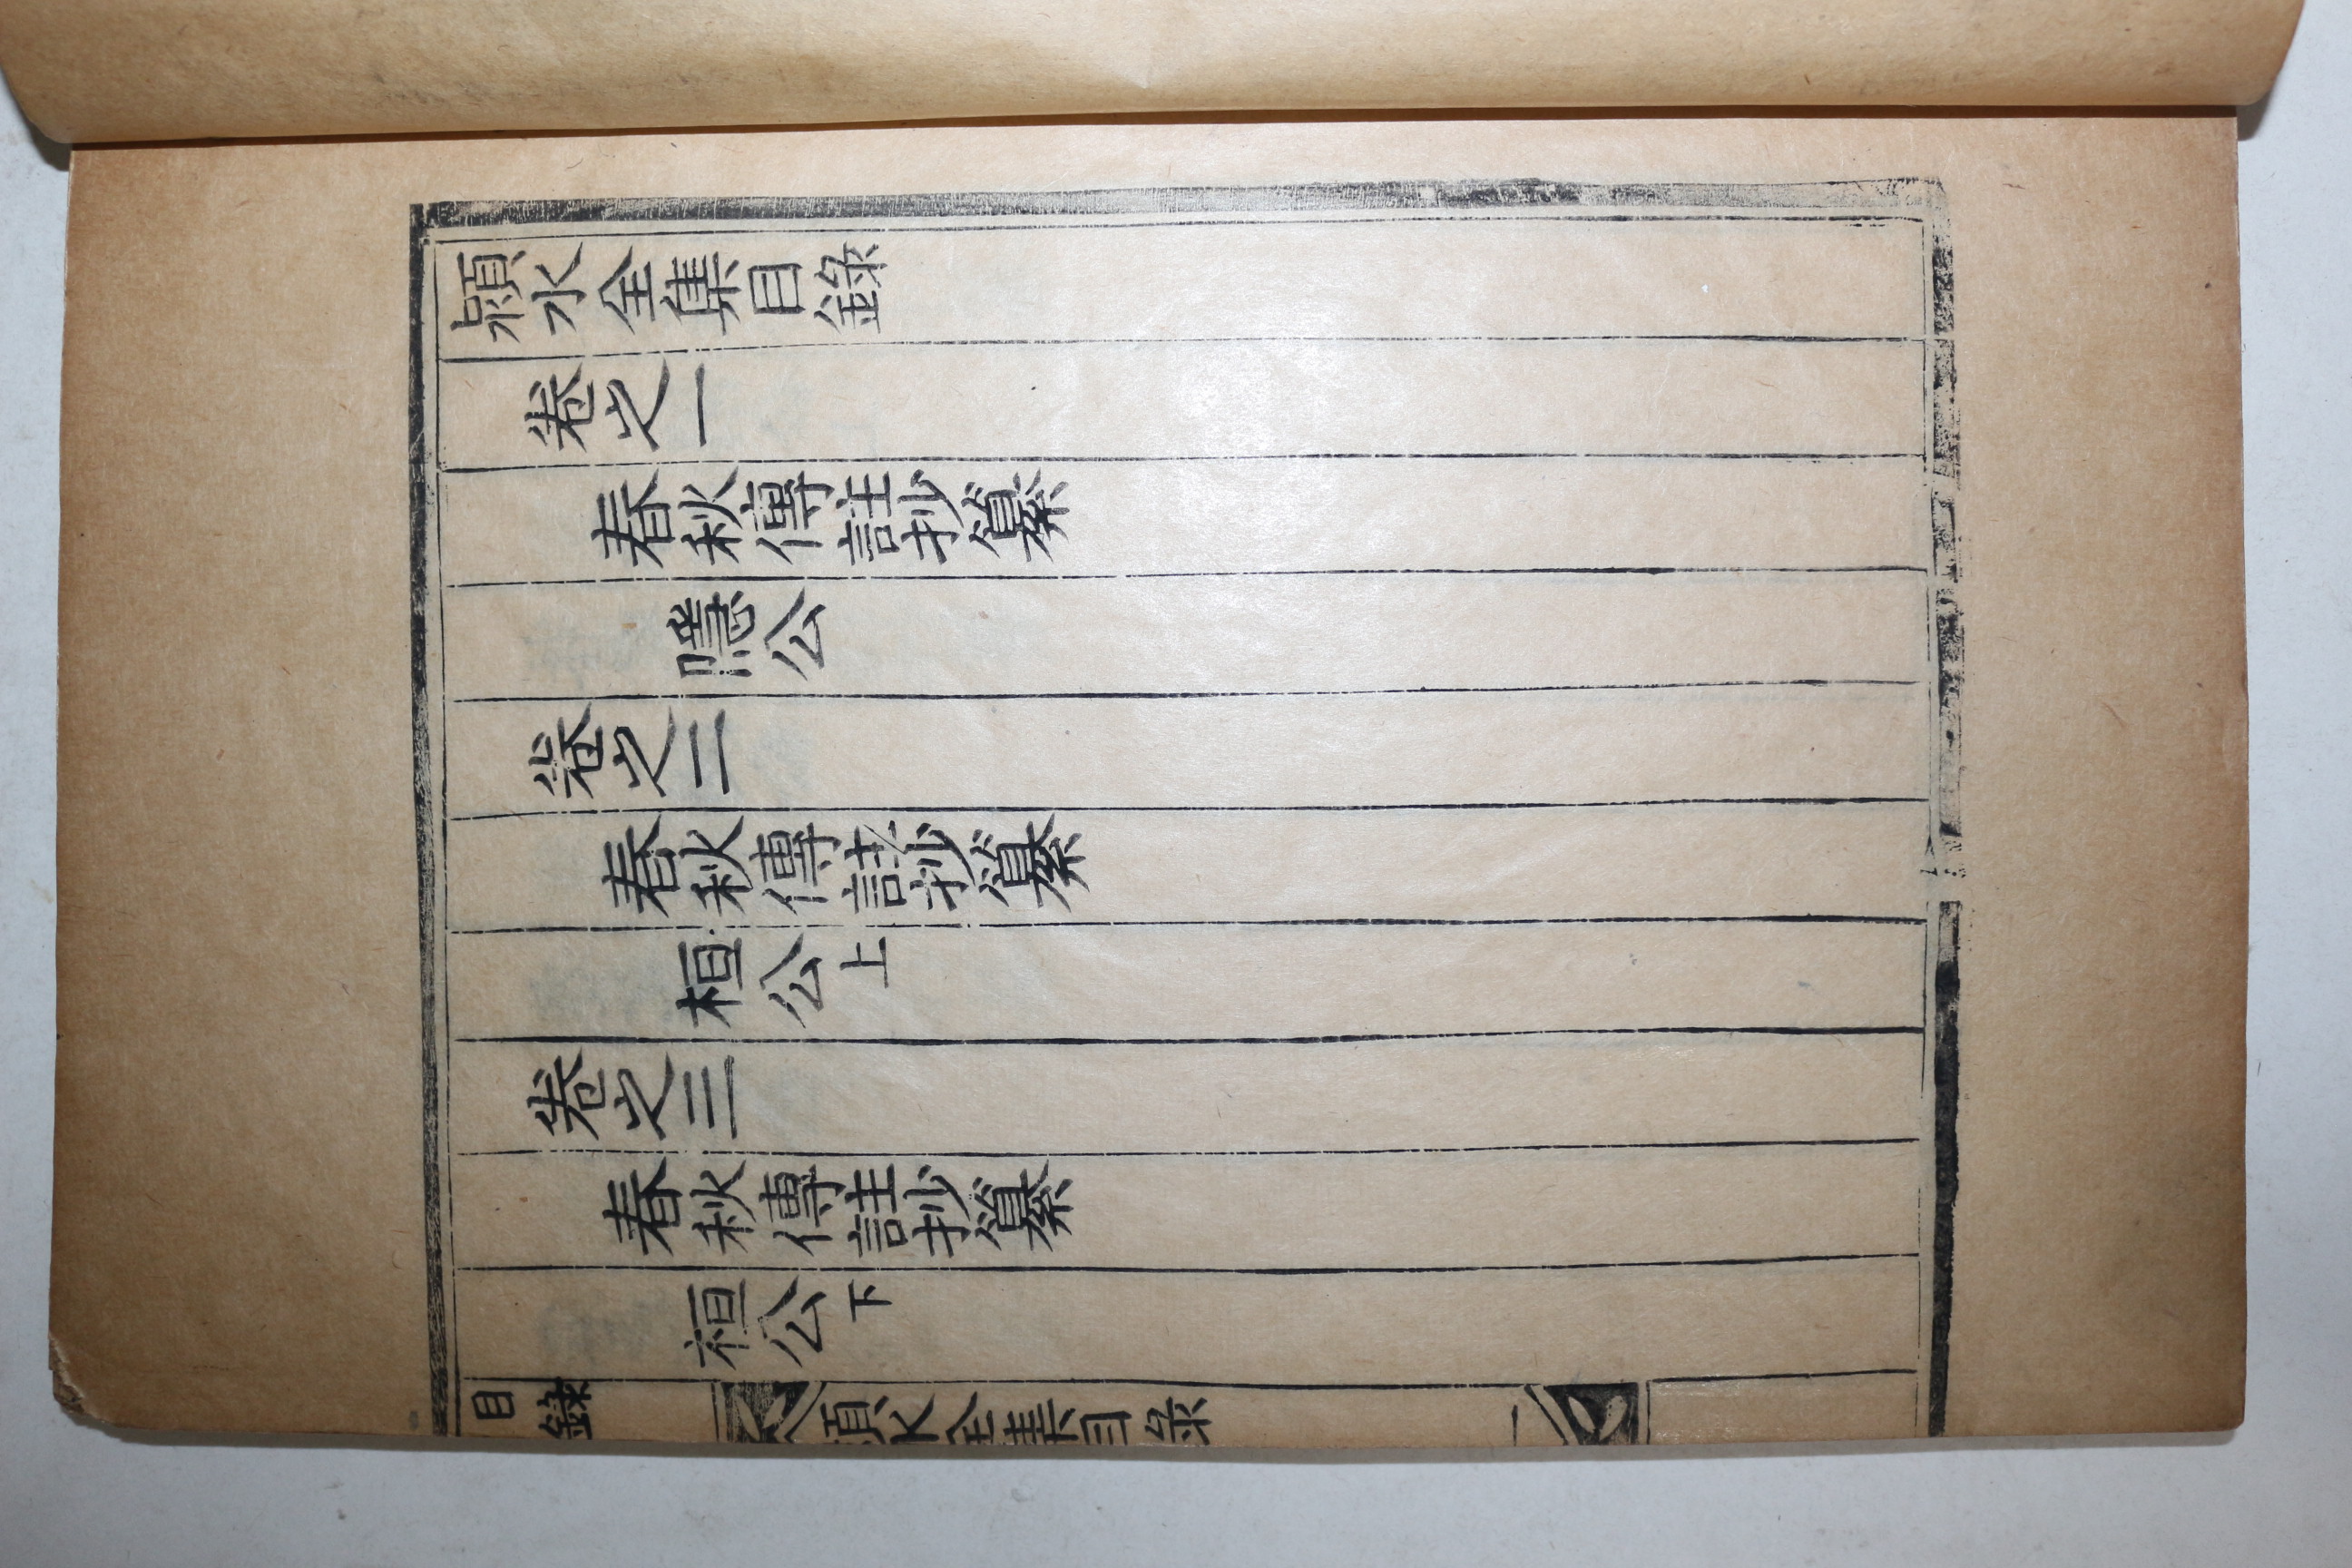 潁水全集目錄
卷之一
春秋傳註抄纂
隱公
卷之二
春秋傳註抄纂
桓公上
卷之三
春秋傳註抄纂
桓公下
目錄
潁水全集目錄 一